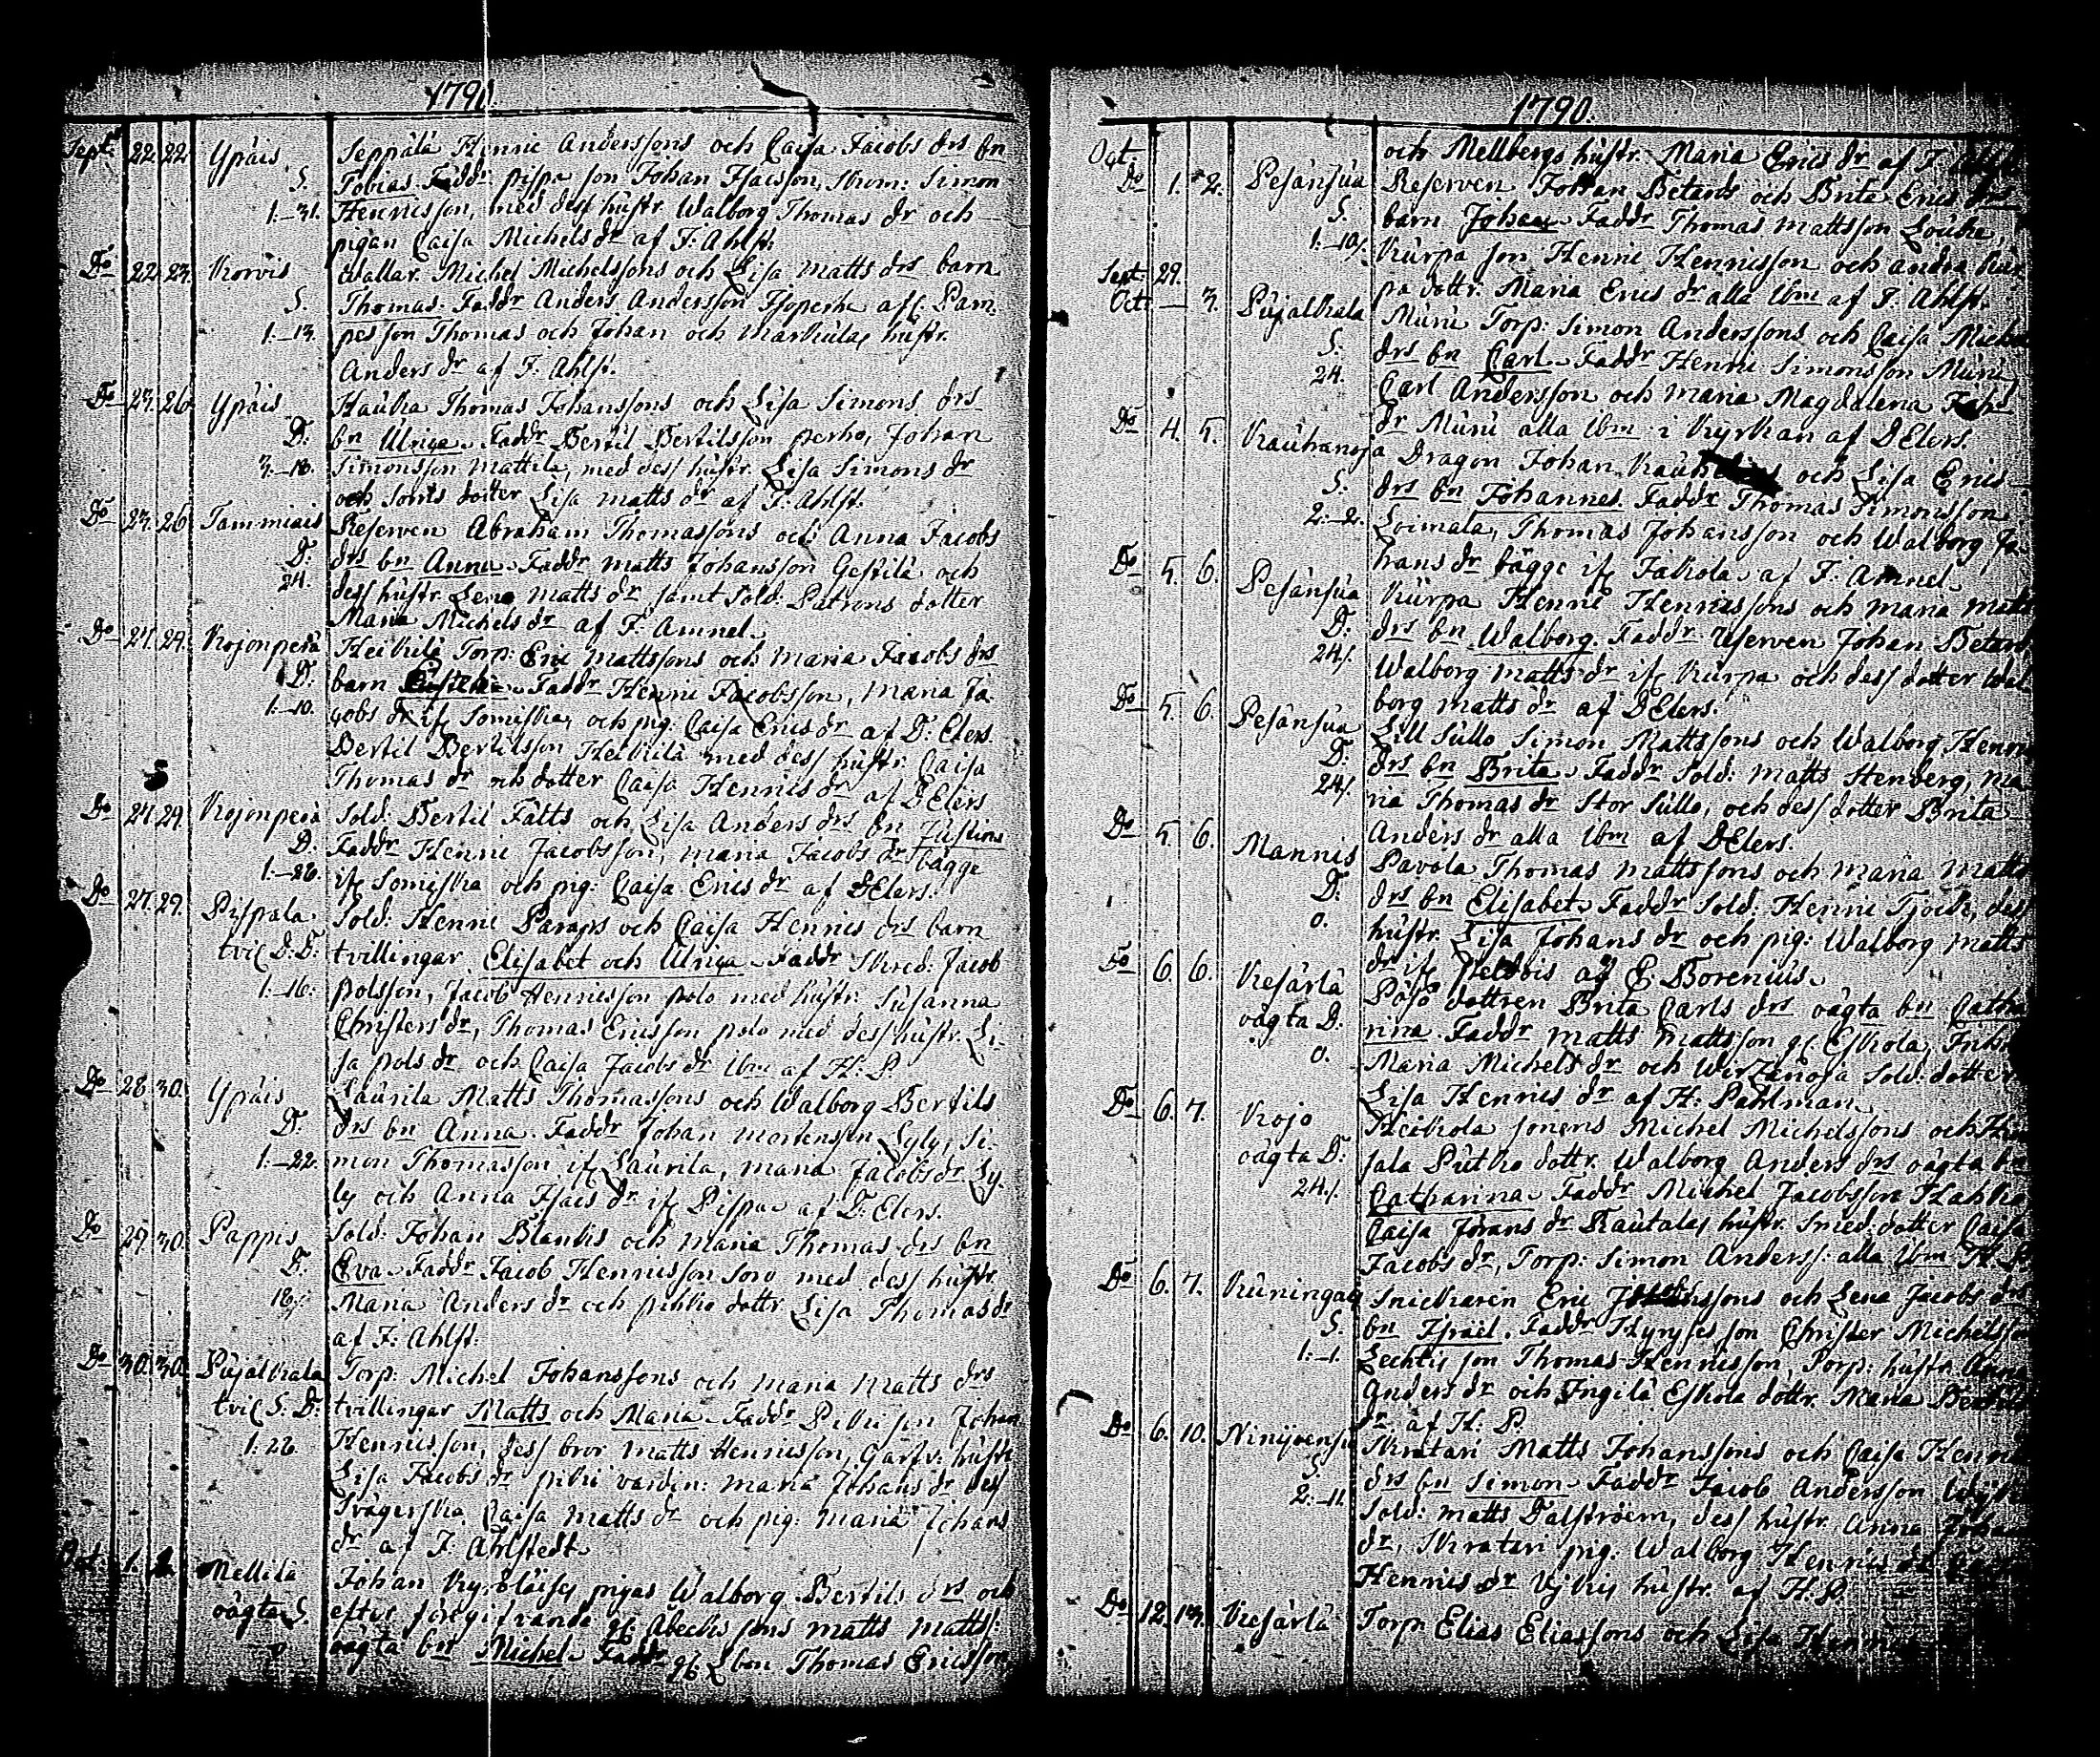 1790.
Sept. 22 22 Ypäis Seppälä Henric Anderssons och Caisa Jacobs drs bn
S. Tobias. Faddr pispa son Johan Isacsson, Skom: Simon
1.–31. Hennicsson, med dess hustr. Walborg Thomas dr och
pigan Caisa Michels dr af J: Ahlst.
Do 22. 23. Korvis Wallar. Michel Michelssons och Lisa Matts drs barn
S. Thomas. Faddr Anders Andersson
1.–13. pes son Thomas och Johan och Markulas hustr.
Anders dr af J. Ahlst.
Do 23. 26 Ypäis Hauka Thomas Johanssons och Lisa Simons drs
D: bn Ulrica. Faddr Bertil Bertilsson perho, Johan
3.–18. Simonsson Mattila, med dess hustr. Lisa Simons dr
och dotter Lisa Matts dr af J. Ahlst.
Do 23. 26 Tammiais Reserven Abraham Thomassons och Anna Jacobs
D: drs bn Anna. Faddr Matts Johansson Gestilä och
24. dess hustr. Lena Matts dr samt Sold: Patrons dotter
Maria Michels dr af F. Amnel.
Do 27. 29. Kojonperä Heikilä Torp: Eric Mattssons och Maria Jacobs drs
D. barn Faddr Henric Jacobsson, Maria Ja
1.–10. cobs dr if Somiska, och pig: Caisa Erics dr af D: Elers.
Bertil Bertilsson Heikilä med dess hustr. Caisa
Thomas dr och dotter Caisa Hennics dr af D Elers
Do 27. 29. Kojonperä Sold: Bertil Fälts och Lisa Anders drs bn Justina
D. Faddr Henric Jacobsson, Maria Jacobs dr bägge
1.–28. if Somiska och pig: Caisa Erics dr af D Elers.
Do 27. 29. Pispala Sold: Henric Pamps och Caisa Hennics drs barn
tvil D: D: tvillingar Elisabet och Ulrica. Faddr Skred: Jacob
1.–16: polsson, Jacob Hennicsson polo med hustr. Susanna
Christers dr, Thomas Ericsson polo med dess hustr. Li-
sa pols dr och Caisa Jacobs dr ibm af H: P.
Do 28. 30. Ypäis Laurila Matts Thomassons och Walborg Bertils
D. drs bn Anna. Faddr Johan Mortensson Lyly, Si-
1.–22. mon Thomasson if Laurila, Maria Jacobs dr Ly-
ly och Anna Isacs dr if Pispa af D: Elers.
Do 29. 30. Pappis Sold: Johan Blanks och Maria Thomas drs bn
D. Eva. Faddr Jacob Hennicsson Soro med dess hustr.
18/. Maria Anders dr och pihko dottr Lisa Thomas dr
af J: Ahlst.
Do 30. 30. Pujalkala Torp: Michel Johanssons och Maria Matts drs
tvil S: D: tvillingar Matts och Maria. Faddr Johan
1: 28. Hennicsson, dess bror Matts Hennicsson, hustr
Lisa Jacobs dr värdin: Maria Johans dr dess
Svägerska Caisa Matts dr och pig: Maria Johans
dr af J. Ahlstedt.
Oct. 1. 2. Mellilä Johan pigas Walborg Bertils drs och
oägta S. efter föregifvande sons Matts Matts:
oägta bn Michel. Faddr Thomas Ericsson
1790.
Oct. och Mellbergs hustr. Maria Erics dr af J.
Do 1. 2. Pesänsua Reserven Johan Betards och Brita Erics drs
S. barn Johan. Faddr Thomas Mattsson
1.–10/. Kurpa son Henric Hennicsson och andra Kur
pa dottr. Maria Erics dr alla ibm af J. Ahlst.
Sept. 29.
Oct. — 3. Pujalkala Muru Torp: Simon Anderssons och Caisa Michels
S. drs bn Carl. Faddr Henric Simonsson Muru,
24. Carl Andersson och Maria Magdalena
dr Muru alla ibm i Kyrkan af D Elers.
Do 4. 5. Kauhanoja Dragon Johan och Lisa Erics
S. drs bn Johannes. Faddr Thomas Simonsson
2.–2. Loimala, Thomas Johansson och Walborg Jo-
hans dr bägge if Jakola af F. Amnel.
Do 5. 6. Pesänsua Kurpa Henric Hennicssons och Maria Matts
D. drs bn Walborg. Faddr Reserven Johan Betard
24/. Walborg Matts dr if Kurpa och dess dotter Wal-
borg Matts dr af D Elers.
Do 5. 6. Pesänsua Lill Sullo Simon Mattssons och Walborg Hennics
D: drs bn Brita. Faddr Sold: Matts Stenberg, Ma
24/. ria Thomas dr Stor Sullo, och dess dotter Brita
Anders dr alla ibm af D Elers.
Do 5. 6. Mannis Pavola Thomas Mattssons och Maria Matts
D. drs bn Elisabet. Faddr Sold: Henric dess
0. hustr. Lisa Johans dr och pig: Walborg Matts
dr if af E. Borenius.
Do 6. 6. Kesärlä Pösö dottren Brita Carls drs oägta bn Catha
oägta D. rina. Faddr Matts Mattsson Eskola,
0. Maria Michels dr och Wirzanoja Sold: dotter
Lisa Hennics dr af H: Pahlman.
Do 6. 7. Kojo Heikola sonens Michel Michelssons och
oägta D: dottr. Walborg Anders drs oägta bn
24/. Catharina. Faddr Michel Jacobsson
Caisa Jörans dr Rautalas hustr. Smed: dotter Caisa
Jacobs dr, Torp: Simon Anderss: alla ibm H. P.
Do 6. 7. Kuningas Snickaren Eric och Lena Jacobs drs
S. bn Israel. Faddr son Christer Michelsson
1.–1. son Thomas Hennicsson, Torp: hustr.
Anders dr och Ingilä Eskola dottr. Maria Bertils
dr af H. P.
Do 6. 10. Ninijoensu Skratari Matts Johanssons och Caisa Hennics
S. drs bn Simon. Faddr Jacob Andersson
2.–11. Sold: Matts Dalström, dess hustr. Anna Johans
dr, Skratari pig: Walborg Hennics dr
Hennics dr hustr. af H. P.
Do 12. 13. Kesärlä Torp: Elias Eliassons och Lisa